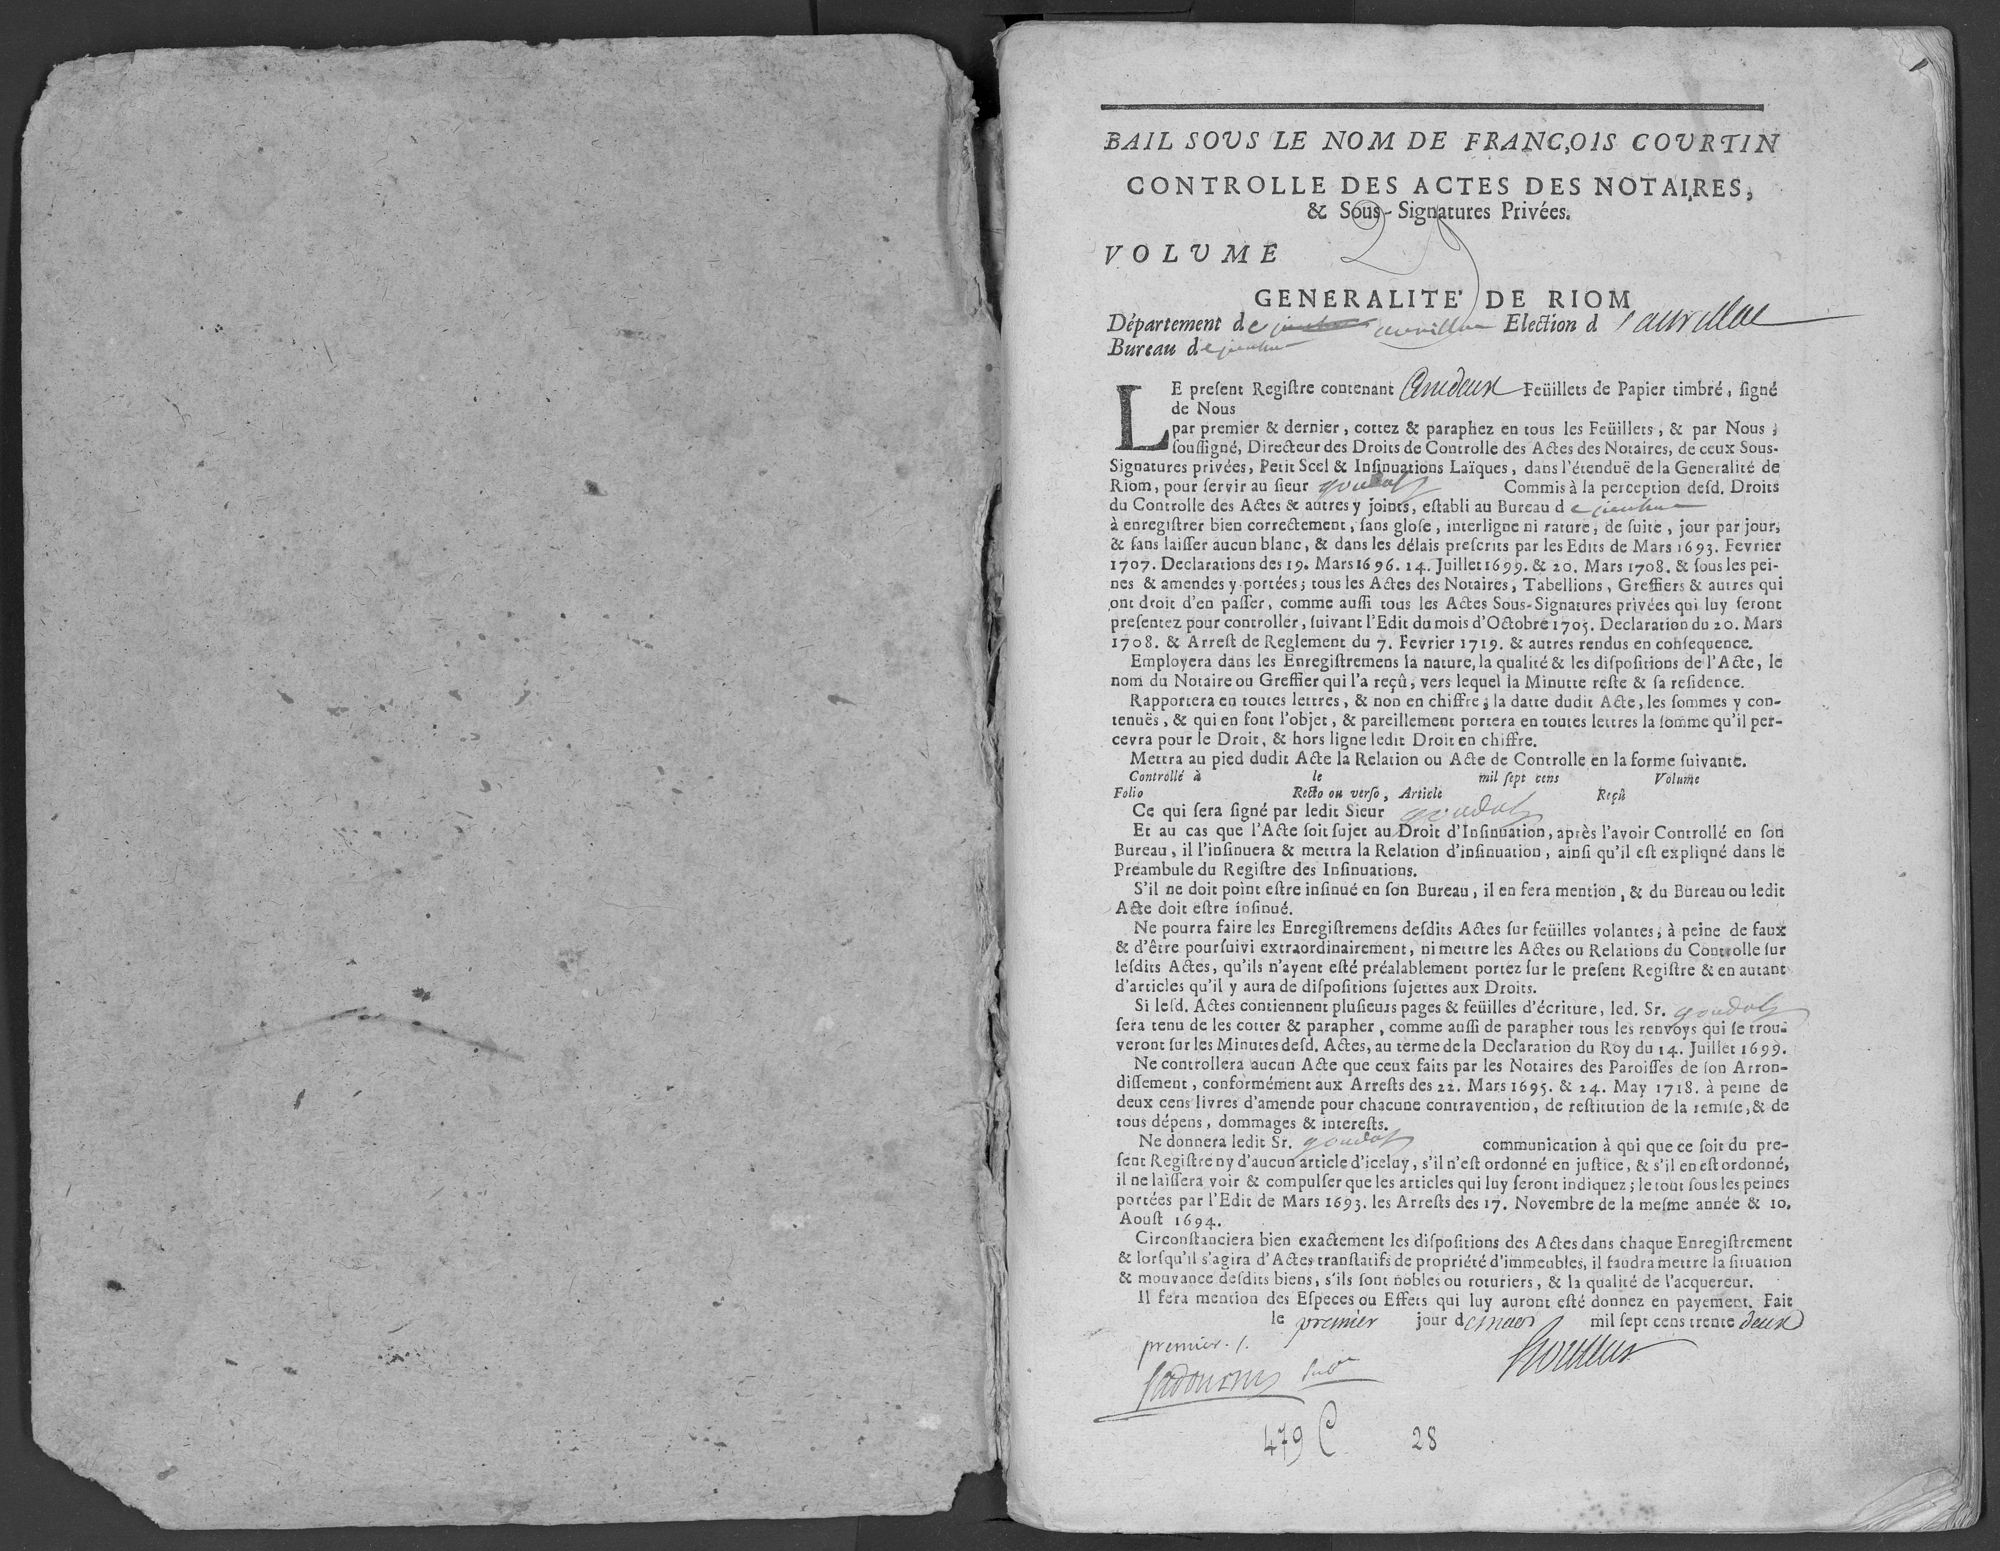 BAIL SOUS LE NOM DE FRANC,OIS COURTIN
CONTROLLE DES ACTES DES NOTAIRES,
& Sous-Signatures Privées.
VOLUME
GENERALITE' DE RIOM
Département de Election d
Bureau de
LE preſent Regiſtre contenant Feüillets de Papier timbré, ſigné
de Nous
par premier & dernier, cottez & paraphez en tous les Feüillets, & par Nous,
ſouſſigné, Directeur des Droits de Controlle des Actes des Notaires, de ceux Sous-
Signatures privées, Petit Scel & Inſinuations Laïques, dans l'étenduë de la Generalité de
Riom, pour ſervir au ſieur Commis à la perception deſd. Droits
du Controlle des Actes & autres y joints, eſtabli au Bureau de
à enregiſtrer bien correctement, ſans gloſe, interligne ni rature, de ſuite, jour par jour,
& ſans laiſſer aucun blanc, & dans les délais preſcrits par les Edits de Mars 1693. Fevrier
1707. Declarations des 19. Mars 1696. 14. Juillet 1699. & 20. Mars 1708. & ſous les pei-
nes & amendes y portées; tous les Actes des Notaires, Tabellions, Greffiers & autres qui
ont droit d'en paſſer, comme auſſi tous les Actes Sous-Signatures privées qui luy ſeront
preſentez pour controller, ſuivant l'Edit du mois d'Octobre 1705. Declaration du 20. Mars
1708. & Arreſt de Reglement du 7. Fevrier 1719. & autres rendus en conſequence.
Employera dans les Enregiſtremens la nature, la qualité & les diſpoſitions de l'Acte, le
nom du Notaire ou Greffier qui l'a reçû, vers lequel la Minutte reſte & ſa reſidence.
Rapportera en toutes lettres, & non en chiffre; la datte dudit Acte, les ſommes y con-
tenuës, & qui en font l'objet, & pareillement portera en toutes lettres la ſomme qu'il per-
cevra pour le Droit, & hors ligne ledit Droit en chiffre.
Mettra au pied dudit Acte la Relation ou Acte de Controlle en la forme ſuivante.
Controllé à le mil ſept cens Volume
Folio Recto ou verſo, Article Reçû
Ce qui ſera ſigné par ledit Sieur
Et au cas que l'Acte ſoit ſujet au Droit d'Inſinuation, après l'avoir Controllé en ſon
Bureau, il l'inſinuera & mettra la Relation d'inſinuation, ainſi qu'il eſt expliqué dans le
Preambule du Regiſtre des Inſinuations.
S'il ne doit point eſtre inſinué en ſon Bureau, il en fera mention, & du Bureau ou ledit
Acte doit eſtre inſinué.
Ne pourra faire les Enregiſtremens deſdits Actes ſur feüilles volantes, à peine de faux
& d'être pourſuivi extraordinairement, ni mettre les Actes ou Relations du Controlle ſur
leſdits Actes, qu'ils n'ayent eſté préalablement portez ſur le preſent Regiſtre & en autant
d'articles qu'il y aura de diſpoſitions ſujettes aux Droits.
Si leſd. Actes contiennent pluſieurs pages & feüilles d'écriture, led. Sr.
ſera tenu de les cotter & parapher, comme auſſi de parapher tous les renvoys qui ſe trou-
veront ſur les Minutes deſd. Actes, au terme de la Declaration du Roy du 14. Juillet 1699.
Ne controllera aucun Acte que ceux faits par les Notaires des Paroiſſes de ſon Arron-
diſſement, conformément aux Arreſts des 22. Mars 1695. & 24. May 1718. à peine de
deux cens livres d'amende pour chacune contravention, de reſtitution de la remiſe, & de
tous dépens, dommages & intereſts.
Ne donnera ledit Sr. communication à qui que ce ſoit du pre-
ſent Regiſtre ny d'aucun article d'iceluy, s'il n'eſt ordonné en juſtice, & s'il en eſt ordonné,
il ne laiſſera voir & compulſer que les articles qui luy ſeront indiquez; le tout ſous les peines
portées par l'Edit de Mars 1693. les Arreſts des 17. Novembre de la meſme année & 10.
Aouſt 1694.
Circonſtanciera bien exactement les diſpoſitions des Actes dans chaque Enregiſtrement
& lorſqu'il s'agira d'Actes tranſlatifs de propriété d'immeubles, il faudra mettre la ſituation
& mouvance deſdits biens, s'ils ſont nobles ou roturiers, & la qualité de l'acquereur.
Il fera mention des Eſpeces ou Effets qui luy auront eſté donnez en payement. Fait
le premier jour de mil ſept cens trente deux
premier. 1.
479 C 28